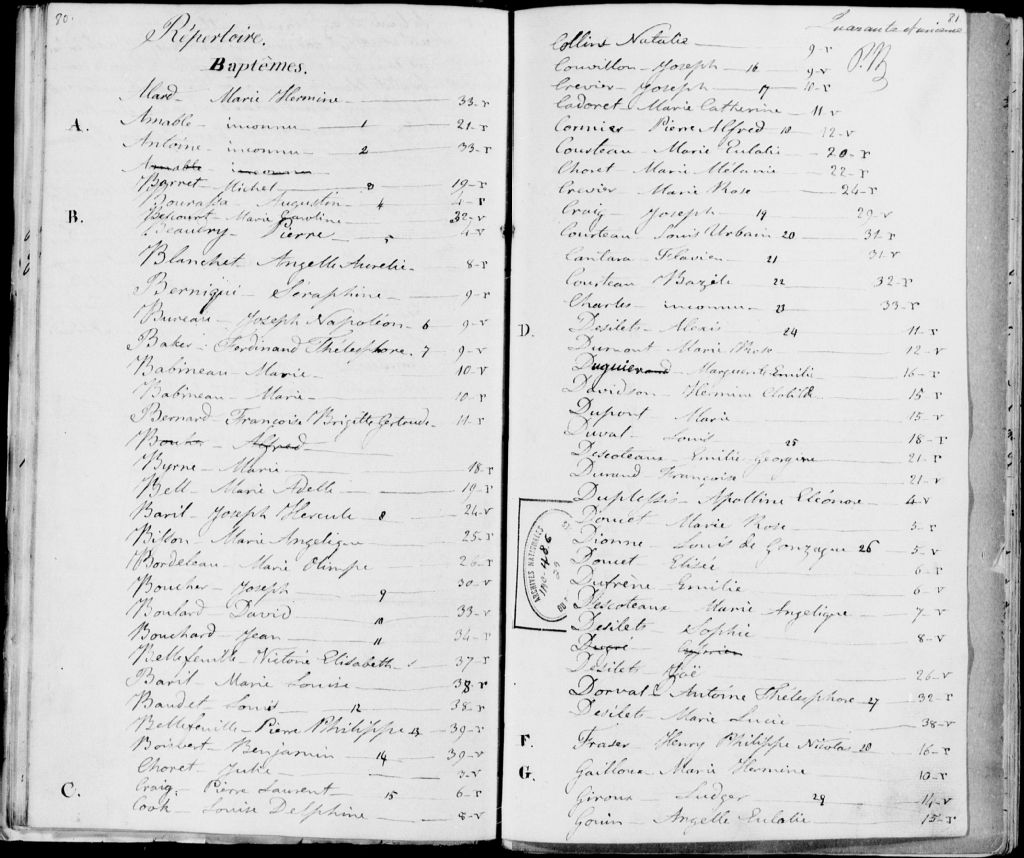 80.
Répertoire.
Baptêmes.
Alard- Marie Hermine 33-r
A. Amable- inconnu 1 21-r
Antoine- inconnu 2 33-r
Amable inconnu
Barret- Michel 3 19-r
Bourassa- Augustin 4 4-r
B. Bécourt- Marie Caroline 32-v
Beaubry- Pierre 5 4-v
Blanchet- Angelle Aurelie- 8-r
Berniqui- Séraphine 9-r
Bureau- Joseph Napoléon- 6 9-v
Baker- Ferdinand Thélesphore. 7 9-v
Babineau- Marie- 10-v
Babineau- Marie- 10-r
Bernard- Françoise Brigitte Gertrude- 11-r
Boucher- Alfred
Byrne- Marie 18-r
Bell- Marie Adelle 19-r
Baril- Joseph Hercule 8 24-v
Bilson- Marie Angelique 25-r
Bordeleau- Marie Olimpe 26-r
Boucher- Joseph 9 30-v
Boulard David 10 33-v
Bouchard- Jean 11 34-r
Bellefeuille- Victoire Elisabeth- 37-r
Baril- Marie Louise 38-r
Baudet- Louis 12 38-r
Bellefeuille- Pierre Philippe 13 39-r
Boisbert- Benjamin 14 39-v
Choret- Julie 3-v
C. Craig- Pierre Laurent 15 6-r
Cook- Louise Delphine 8-v
81
Quarante et unieme
P.B
Collins Natalie 9-r
Couvillon- Joseph- 16 9-v
Crevier- Joseph 17 10-r
Cadoret- Marie Catherine 11-v
Cormier- Pierre Alfred 18 12-v
Courteau- Marie Eulalie 20-r
Choret- Marie Mélanie 22-r
Crevier- Marie Rose 24-r
Craig- Joseph 19 29-v
Courteau- Louis Urbain 20 31-r
Cantara- Flavien 21 31-v
Courteau- Bazile 22 32-r
Charles- inconnu 23 33-r
D. Desilets- Alexis 24 11-r
Dumont- Marie Rose 12-v
Duguier Marguerite Emilie 16-r
Davidson- Hermine Clotilde 15-r
Dupont- Marie 15-v
Duval- Louis 25 18-r
Descoteaux- Emilie Georgine 21-r
Durand- Françoise 21-v
Duplessis- Apolline Eléonore 4-v
Doucet- Marie Rose 5-r
Dionne- Louis de Gonzague 26 5-v
Doucet- Elisée 6-r
Dufrêne- Emilie 6-v
Descoteaux- Marie Angelique 7-v
Desilets- Sophie 8-v
Desilets- 26-v
Dorval- Antoine Thélesphore 27 32-r
Desilets- Marie Lucie 38-v
F. Fraser- Henry Philippe Nicolas 28 16-r
G. Gailloux- Marie Hermine 10-r
Giroux- Ludger 29 14-v
Gouin- Angelle Eulalie 15-r
ARCHIVES NATIONALES